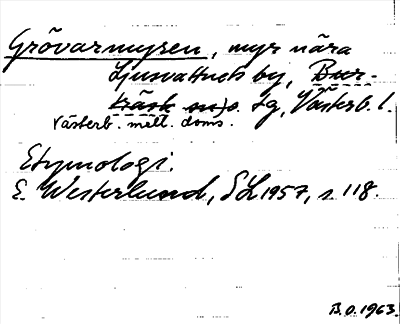 Grövarmyren, myr nära
Ljusvattnets by, Bur-
träsk sn, s. tg, Västerb. l.
Västerb. mell. doms.
Etymologi.
E. Westerlund, SL 1957, s. 118.
B.O. 1963.